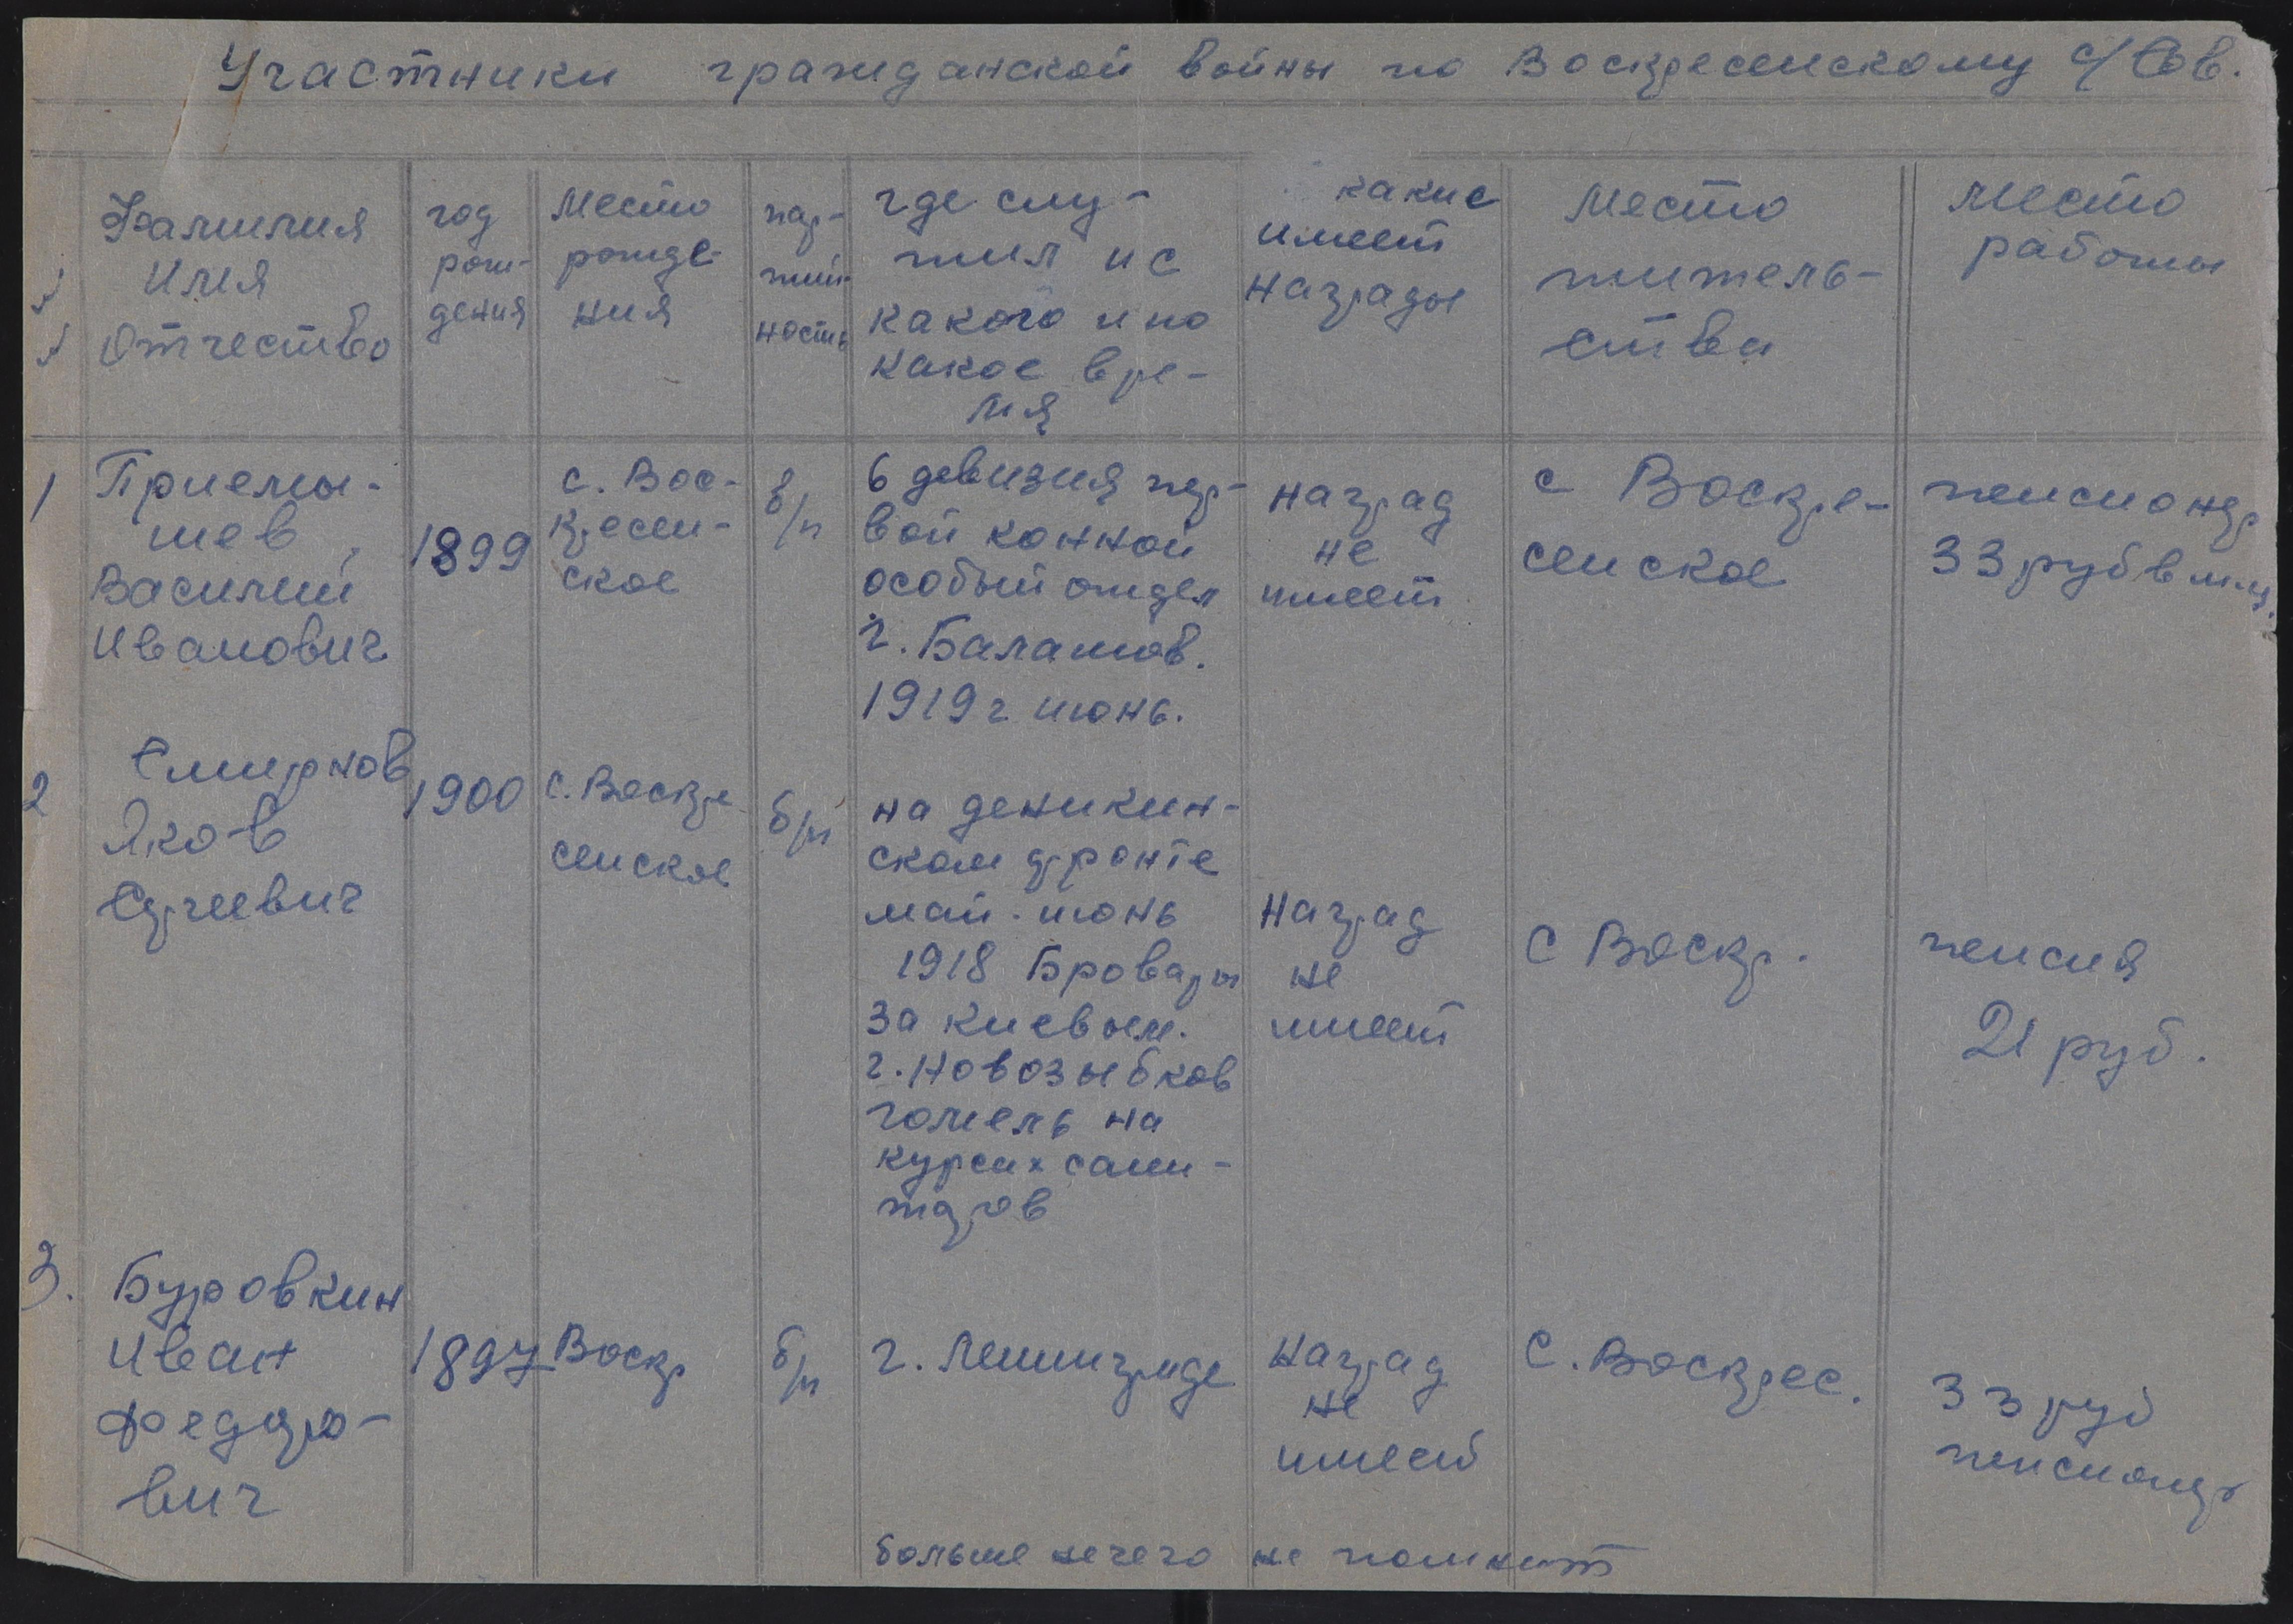 Участники гражданской войны по Воскресенскому с/Сов.
Фамилия
Имя
Отчество
год
рож-
дения
Место
рожде-
ния
пар-
тий-
ность
где слу-
жил и с
какого и по
какое вре-
мя
какие
имеет
награды
Место
житель-
ства
Место
работы
1
Приемы-
шев
Василий
Иванович
1899
с. Вос-
кресен-
ское
б/п
6 девизия пер-
вой конной
особый отдел
г. Балашов.
1919 г июнь.
наград
не
имеет
с Воскре-
сенское
пенсионер
33 руб в мец.
2
Смирнов
Яков
Сергеевич
1900
с. Воскре
сенское
б/п
на деникин-
ском фронте
май-июнь
1918 Бровары
за Киевым.
г. Новозыбков
гомель на
курсах сани-
таров
наград
не
имеет
С Воскр.
пенсия
21 руб.
3.
Буровкин
Иван
Федоро-
вич
1897
Воскр
б/п
г. Ленинграде
наград
не
имеет
С. Воскрес.
33 руб
пенсионер
больше нечего не помнит